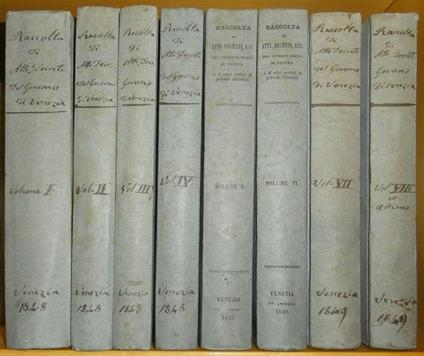 Raccolta
Di
Atti Decreti
Del Governo
Di Venezia
Volume I.
Venezia
1848
Raccolta
Di
Atti. Decr.
del Governo
di Venezia
Vol. II
Venezia
1848
Raccolta
Di
Atti. Decr.
Governo
di Venezia
Vol III
Venezia
1848
Raccolta
Di
Atti. Decreti. Ecc
del Governo
di Venezia
Vol. IV.
Venezia
1848
RACCOLTA
DI
ATTI, DECRETI, ECC.
DEL GOVERNO PROVV.
DI VENEZIA
VOLUME V.
VENEZIA
TIP. ANDREOLA
1849.
RACCOLTA
DI
ATTI, DECRETI, ECC.
DEL GOVERNO PROVV.
DI VENEZIA
VOLUME VI.
VENEZIA
TIP. ANDREOLA
1849.
Raccolta
Di
Atti. Decreti
del Governo
di Venezia
Vol. VII
Venezia
1849
Raccolta
Di
Atti. Decreti
Governo
di Venezia
Vol. VIII
ed ultimo
Venezia
1849